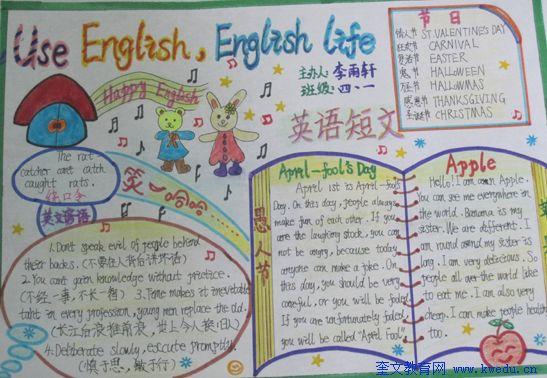 Use English, English life
Happy English
主办人: 李雨轩
班级: 四、一
节日
情人节 ST.VALENTINE'S DAY
狂欢节 CARNIVAL
复活节 EASTER
鬼节 HALLOWEEN
万圣节 HALLOWMAS
感恩节 THANKSGIVING
圣诞节 CHRISTMAS
The rat
catcher cant catch
caught rats.
绕口令
笑一哈哈
英语短文
英文谚语
1. Don't speak evel of people behind
their backs. (不要在人背后讲坏话)
2. You cant gain knowledge without practice.
(不经一事,不长一智) 3. Time makes it inevitable
that in every profession, young men replace the old.
(长江后浪推前浪, 世上今人换旧人)
4. Deliberate slowly, execute promptly.
(慎于思,敏于行)
愚人节
April-fool's Day
April 1st is April-fool's
Day. On this day, people always
make fun of each other. If you
are the laughing stock, you can
not be angry, because today
anyone can make a joke. On
this day, you should be very
careful, or you will be fooled
If you are unfortunately fooled,
you will be called "April Fool".
Apple
Hello! I am an Apple.
You can see me everywhere in
the world. Banana is my
sister. We are different. I
am round and my sister is
long. I am very delicious. So
people all over the world like
to eat me. I am also very
cheap. I can make people healthy
too.
奎文教育网 www.kwedu.cn